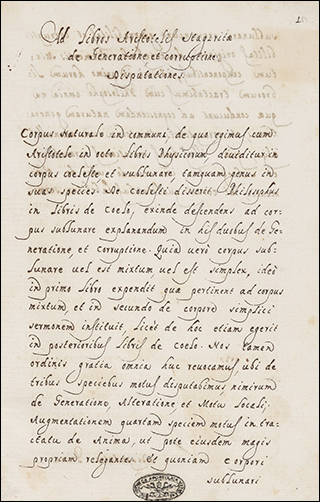 Ad Libros Aristotelis Stagiritæ
de Generatione, et corruptione
Disputationes.
Corpus Naturale in communi, de quo egimus cum
Aristotele in octo libris Physicorum dividitur in
corpus coeleste et sublunare, tamquam genus in
suas species. De coelesti disserit Philosophus
in libris de Coelo, exinde descendens ad cor-
pus sublunare explanandum in his duobus de Ge-
neratione, et Corruptione. Quia vero corpus sub-
lunare vel est mixtum vel est simplex, ideo
in primo libro expendit quæ pertinent ad corpus
mixtum, et in secundo de corpore simplici
sermonem instituit, licet de hoc etiam egerit
in posterioribus libris de Coelo. Nos tamen
ordinis gratia omnia huc revocamus, ubi de
tribus speciebus motus disputabimus, nimirum
de Generatione, Alteratione, et Motu Locali;
Augmentationem quartam speciem motus in tra-
ctatu de Anima, ut pote eiusdem magis
propriam relegantes. Et quoniam corpori
sublunari